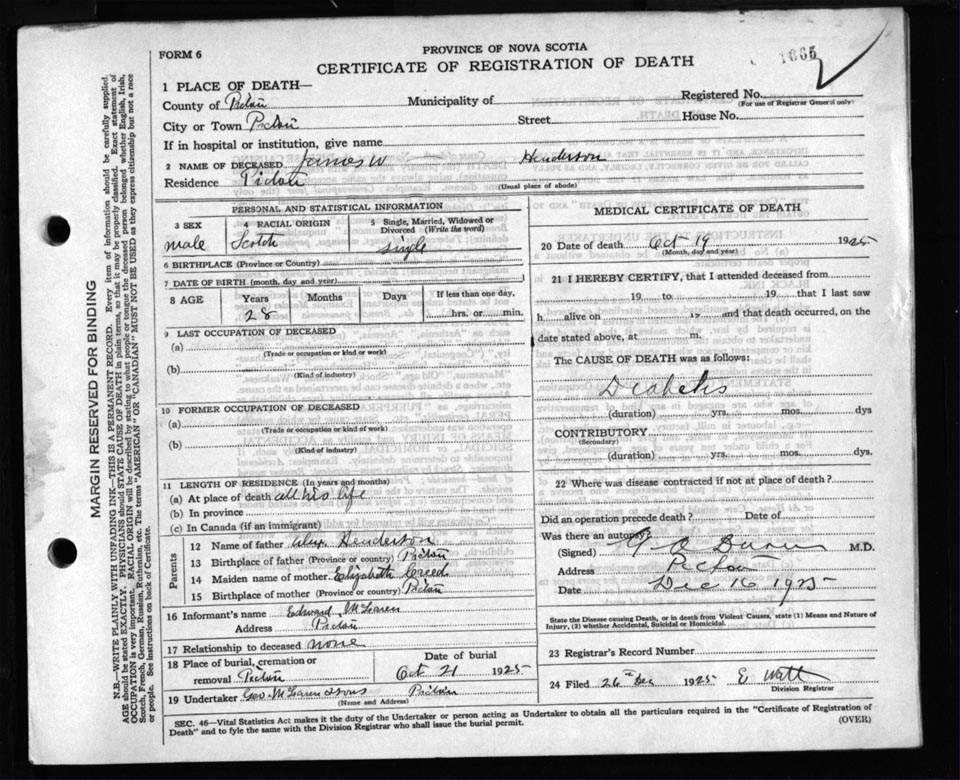 FORM 6
PROVINCE OF NOVA SCOTIA
CERTIFICATE OF REGISTRATION OF DEATH
1665
1 PLACE OF DEATH—
County of Pictou Municipality of Registered No.
(For use of Registrar General only)
City or Town Pictou Street House No.
If in hospital or institution, give name
2 NAME OF DECEASED James W Henderson
Residence Pictou (Usual place of abode)
PERSONAL AND STATISTICAL INFORMATION
3 SEX 4 RACIAL ORIGIN 5 Single, Married, Widowed or Divorced (Write the word)
male Scotch single
6 BIRTHPLACE (Province or Country)
7 DATE OF BIRTH (month, day and year)
8 AGE Years Months Days If less than one day,
28 hrs. or min.
9 LAST OCCUPATION OF DECEASED
(a)
(Trade or occupation or kind or work)
(b)
(Kind of industry)
10 FORMER OCCUPATION OF DECEASED
(a)
(Trade or occupation or kind of work)
(b)
(Kind of industry)
11 LENGTH OF RESIDENCE (In years and months)
(a) At place of death all his life
(b) In province
(c) In Canada (if an immigrant)
Parents
12 Name of father Alex Henderson
13 Birthplace of father (Province or country) Pictou
14 Maiden name of mother Elizabeth Creed
15 Birthplace of mother (Province or country) Pictou
16 Informant's name Edward McLaren
Address Pictou
17 Relationship to deceased none
18 Place of burial, cremation or removal Pictou
Date of burial
Oct 21 1925
19 Undertaker Geo McLaren & Sons Pictou
(Name and Address)
MEDICAL CERTIFICATE OF DEATH
20 Date of death Oct 19 1925
(Month, day and year)
21 I HEREBY CERTIFY, that I attended deceased from
19 to 19 that I last saw
h alive on 19 and that death occurred, on the
date stated above, at m.
The CAUSE OF DEATH was as follows:
Diabetis
(duration) yrs. mos. dys
CONTRIBUTORY
(Secondary)
(duration) yrs. mos. dys
22 Where was disease contracted if not at place of death?
Did an operation precede death? Date of
Was there an autopsy?
(Signed) M.D.
Address Pictou
Date Dec 16 1925
State the Disease causing Death, or in death from Violent Causes, state (1) Means and Nature of
Injury, (2) whether Accidental, Suicidal or Homicidal.
23 Registrar's Record Number
24 Filed 26th Dec 1925 E Watt
Division Registrar
SEC. 46—Vital Statistics Act makes it the duty of the Undertaker or person acting as Undertaker to obtain all the particulars required in the "Certificate of Registration of
Death" and to fyle the same with the Division Registrar who shall issue the burial permit. (OVER)
MARGIN RESERVED FOR BINDING
N.B.—WRITE PLAINLY WITH UNFADING INK—THIS IS A PERMANENT RECORD. Every item of information should be carefully supplied.
AGE should be stated EXACTLY. PHYSICIANS should STATE CAUSE OF DEATH in plain terms, so that it may be properly classified. Exact statement of
OCCUPATION is very important. RACIAL ORIGIN will be described by stating to what people or tongue the deceased person belonged whether English, Irish,
Scotch, French, German, Russian, Ruthenian, etc. The terms "AMERICAN" OR "CANADIAN" MUST NOT BE USED as they express citizenship but not a race
or people. See instructions on back of Certificate.